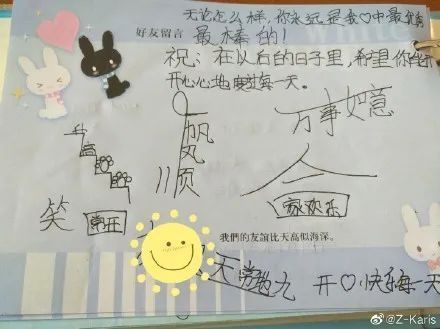 无论怎么样,你永远是我♡中最
好友留言
最棒的!
祝:在以后的日子里,希望你
开心心地度过每一天。
帆风顺
万事如意
高
笑
常开
家欢乐
我們的友誼比天高似海深。
天
九
开♡快 每一天
@Z-Karis